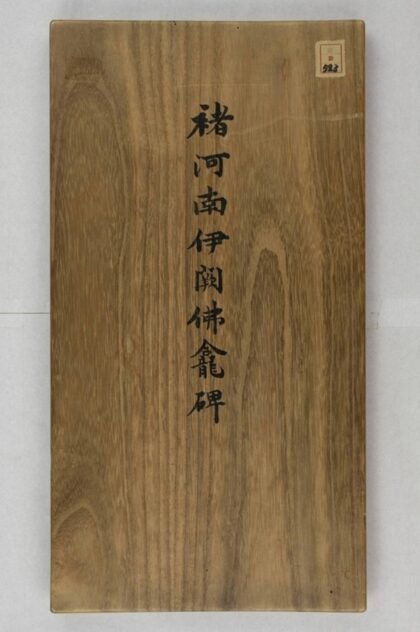 褚河南伊闕佛龕碑